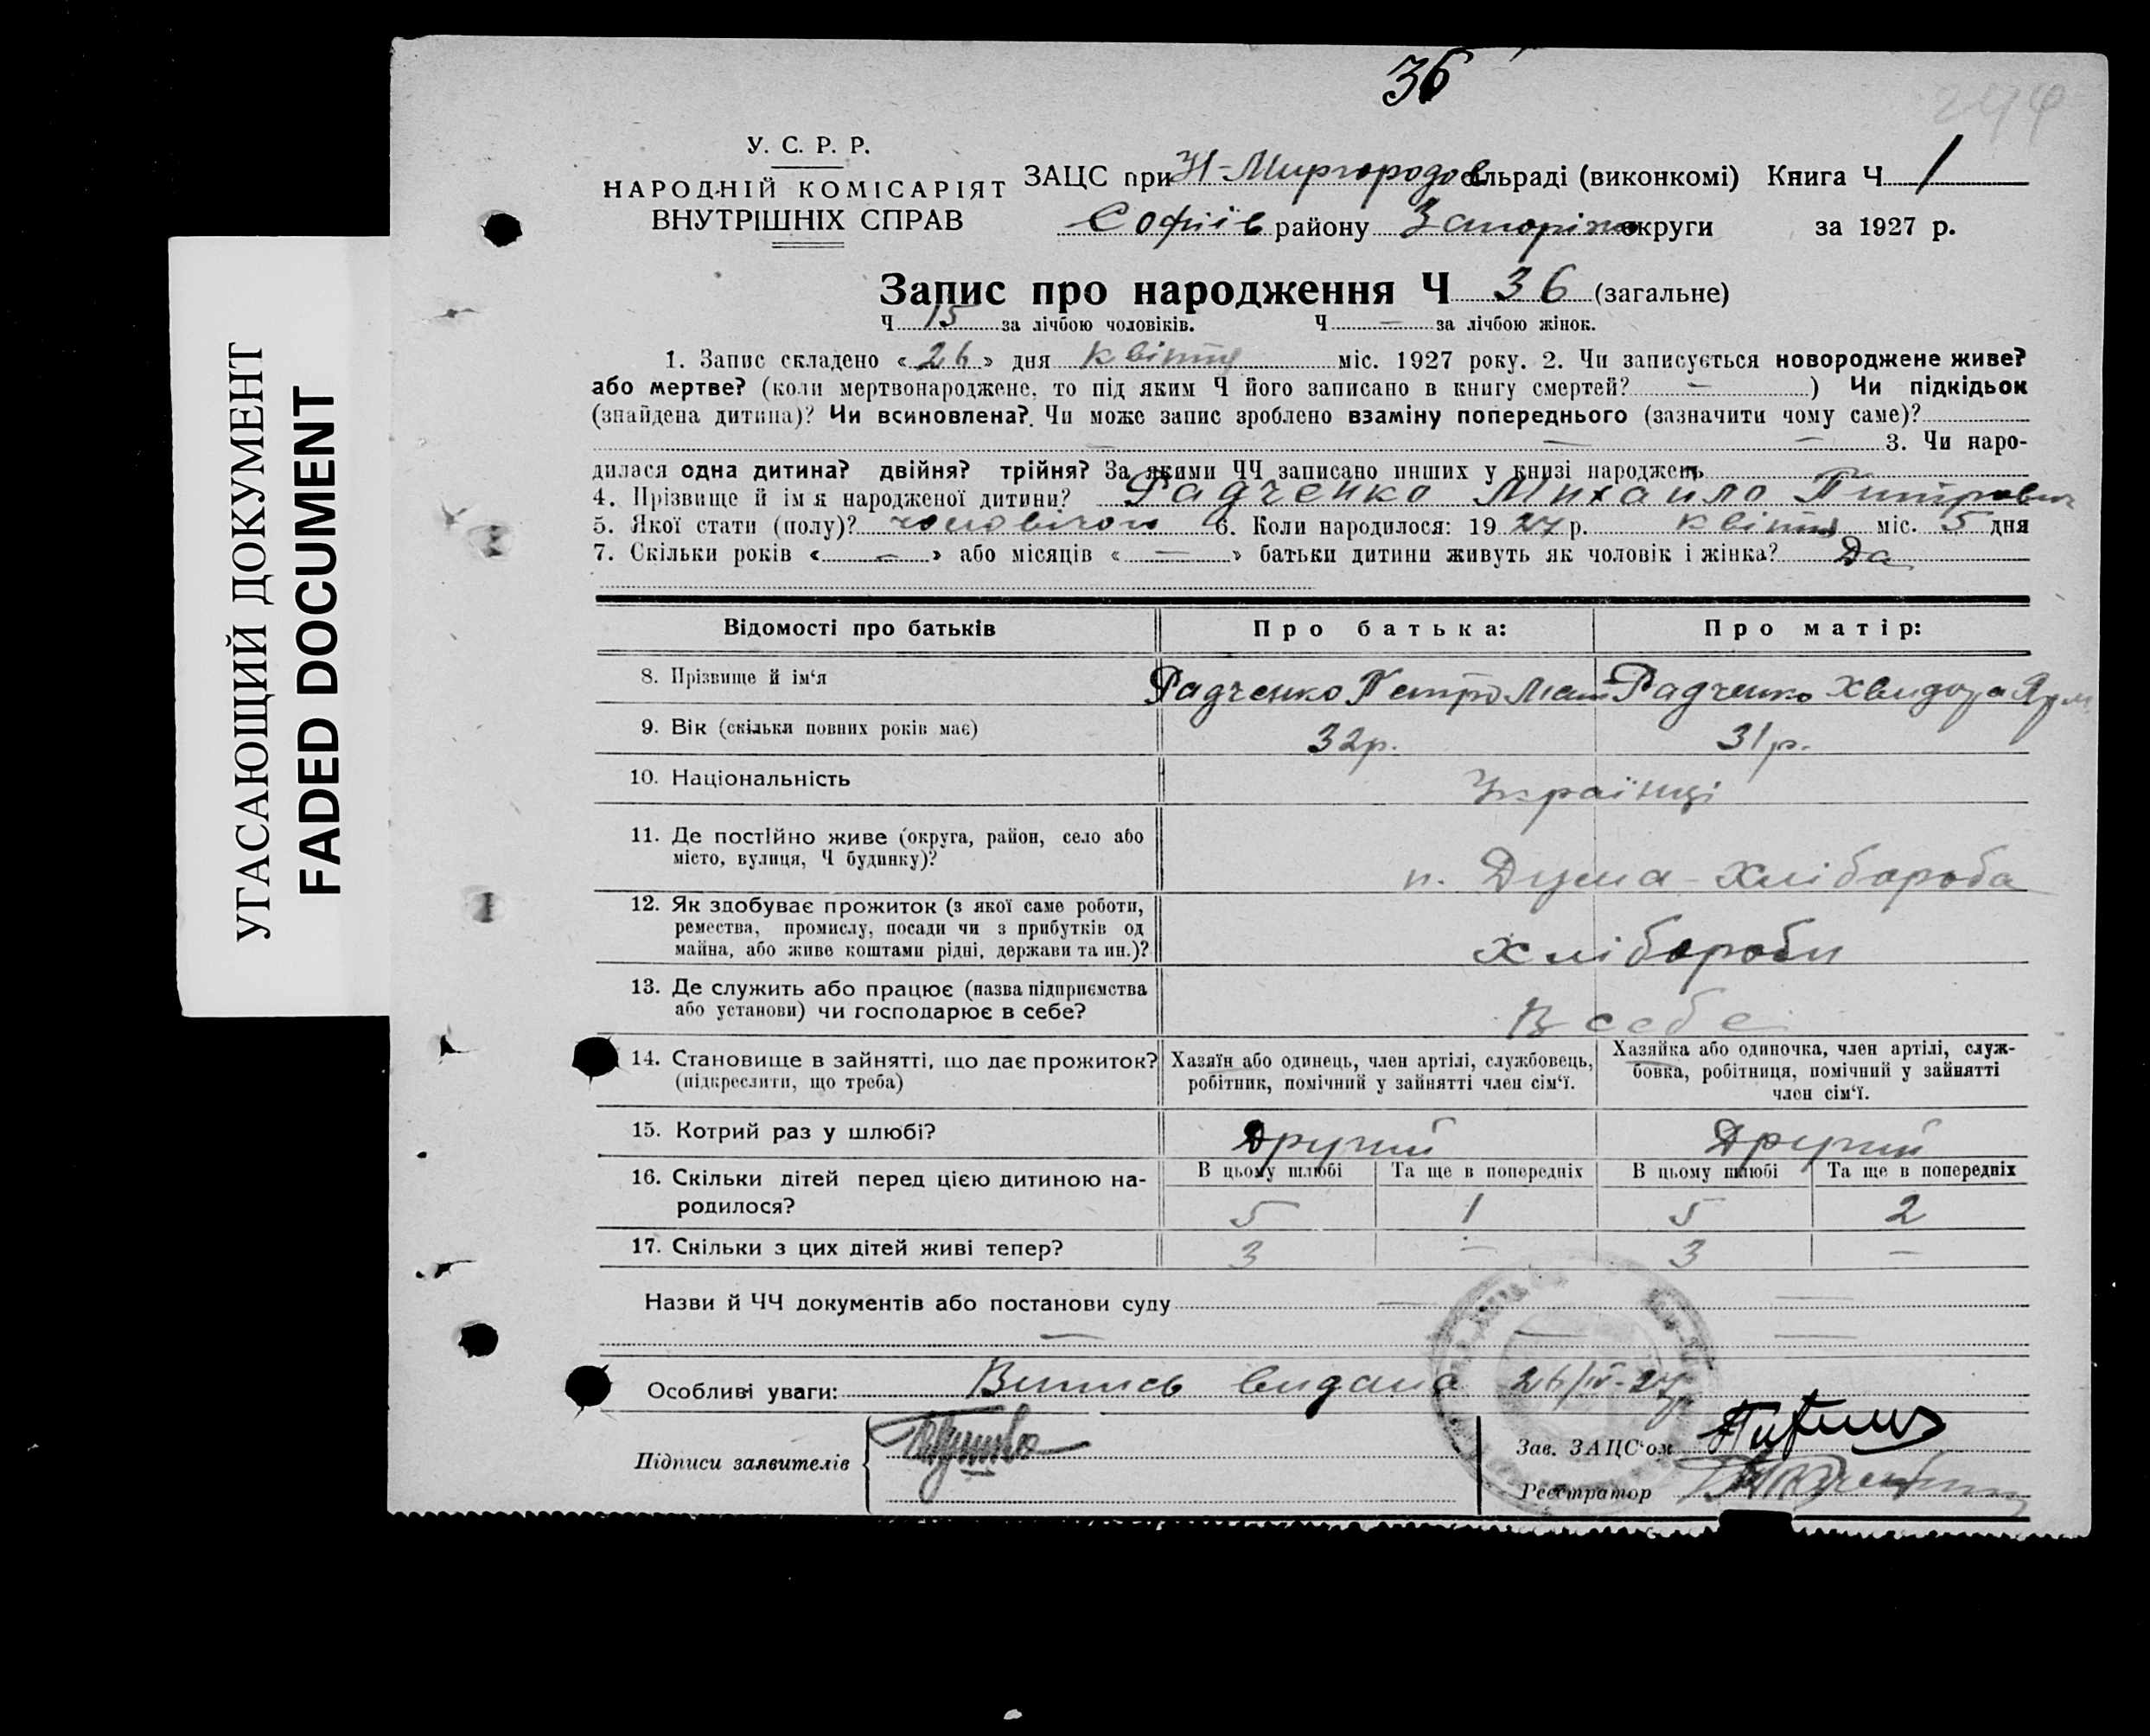 36
244
У. С. Р. Р.
НАРОДНІЙ КОМІСАРІЯТ
ВНУТРІШНІХ СПРАВ
ЗАЦС при Н-Миргородов сільраді (виконкомі) Книга Ч. 1
Софіїв району Запоріж округи за 1927 р.
Запис про народження Ч 36 (загальне)
Ч. 15 за лічбою чоловіків. Ч. — за лічбою жінок.
1. Запис складено «26» дня квітня міс. 1927 року. 2. Чи записується новороджене живе?
або мертве? (коли мертвонароджене, то під яким Ч його записано в книгу смертей? — ) Чи підкідьок
(знайдена дитина)? Чи всиновлена? Чи може запис зроблено взаміну попереднього (зазначити чому саме)?
— — — 3. Чи наро-
дилася одна дитина? двійня? трійня? За якими ЧЧ записано инших у книзі народжень
4. Прізвище й ім'я народженої дитини? Радченко Михаило Питрович
5. Якої стати (полу)? 6. Коли народилося: 1927 р. квітня міс. 5 дня
7. Скільки років « — » або місяців « — » батьки дитини живуть як чоловік і жінка? Да
Відомості про батьків
Про батька:
Про матір:
8. Прізвище й ім'я Радченко Петро Радченко Хвидора
9. Вік (скільки повних років має) 32р. 31р.
10. Національність Українці
11. Де постійно живе (округа, район, село або
місто, вулиця, Ч будинку)?
п. Дума-Хлібороба
12. Як здобуває прожиток (з якої саме роботи,
ремества, промислу, посади чи з прибутків од
майна, або живе коштами рідні, держави та ин.)?
Хлібороби
13. Де служить або працює (назва підприємства
або установи) чи господарює в себе?
В себе
14. Становище в зайнятті, що дає прожиток?
(підкреслити, що треба)
Хазяїн або одинець, член артілі, службовець,
робітник, помічний у зайнятті член сім'ї.
Хазяйка або одиночка, член артілі, служ-
бовка, робітниця, помічний у зайнятті
член сім'ї.
15. Котрий раз у шлюбі? Другий Другий
16. Скільки дітей перед цією дитиною на-
родилося?
В цьому шлюбі Та ще в попередніх В цьому шлюбі Та ще в попередніх
5 1 5 2
17. Скільки з цих дітей живі тепер? 3 — 3 —
Назви й ЧЧ документів або постанови суду — —
— — —
Особливі уваги: Випись видана 26/IV-27р
Підписи заявителів
Зав. ЗАЦС'ом
Реєстратор
УГАСАЮЩИЙ ДОКУМЕНТ
FADED DOCUMENT